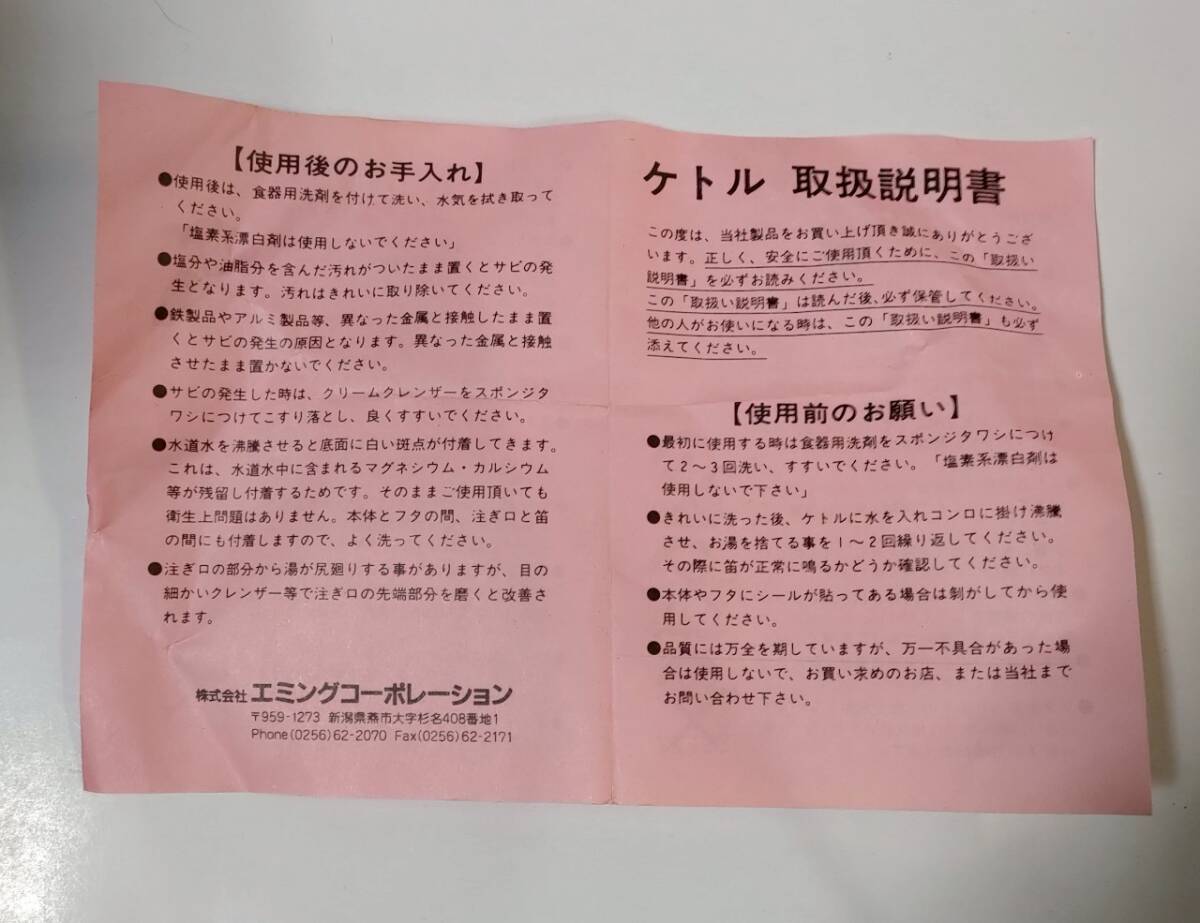 ケトル 取扱説明書
この度は、当社製品をお買い上げ頂き誠にありがとうござ
います。正しく、安全にご使用頂くために、この「取扱い
説明書」を必ずお読みください。
この「取扱い説明書」は読んだ後、必ず保管してください。
他の人がお使いになる時は、この「取扱い説明書」も必ず
添えてください。
【使用前のお願い】
●最初に使用する時は食器用洗剤をスポンジタワシにつけ
て2〜3回洗い、すすいでください。「塩素系漂白剤は
使用しないで下さい」
●きれいに洗った後、ケトルに水を入れコンロに掛け沸騰
させ、お湯を捨てる事を1〜2回繰り返してください。
その際に笛が正常に鳴るかどうか確認してください。
●本体やフタにシールが貼ってある場合は剝がしてから使
用してください。
●品質には万全を期していますが、万一不具合があった場
合は使用しないで、お買い求めのお店、または当社まで
お問い合わせ下さい。
【使用後のお手入れ】
●使用後は、食器用洗剤を付けて洗い、水気を拭き取って
ください。
「塩素系漂白剤は使用しないでください」
●塩分や油脂分を含んだ汚れがついたまま置くとサビの発
生となります。汚れはきれいに取り除いてください。
●鉄製品やアルミ製品等、異なった金属と接触したまま置
くとサビの発生の原因となります。異なった金属と接触
させたまま置かないでください。
●サビの発生した時は、クリームクレンザーをスポンジタ
ワシにつけてこすり落とし、良くすすいでください。
●水道水を沸騰させると底面に白い斑点が付着してきます。
これは、水道水中に含まれるマグネシウム・カルシウム
等が残留し付着するためです。そのままご使用頂いても
衛生上問題はありません。本体とフタの間、注ぎ口と笛
の間にも付着しますので、よく洗ってください。
●注ぎ口の部分から湯が尻廻りする事がありますが、目の
細かいクレンザー等で注ぎ口の先端部分を磨くと改善さ
れます。
株式会社 エミングコーポレーション
〒959-1273 新潟県燕市大字杉名408番地1
Phone(0256)62-2070 Fax(0256)62-2171